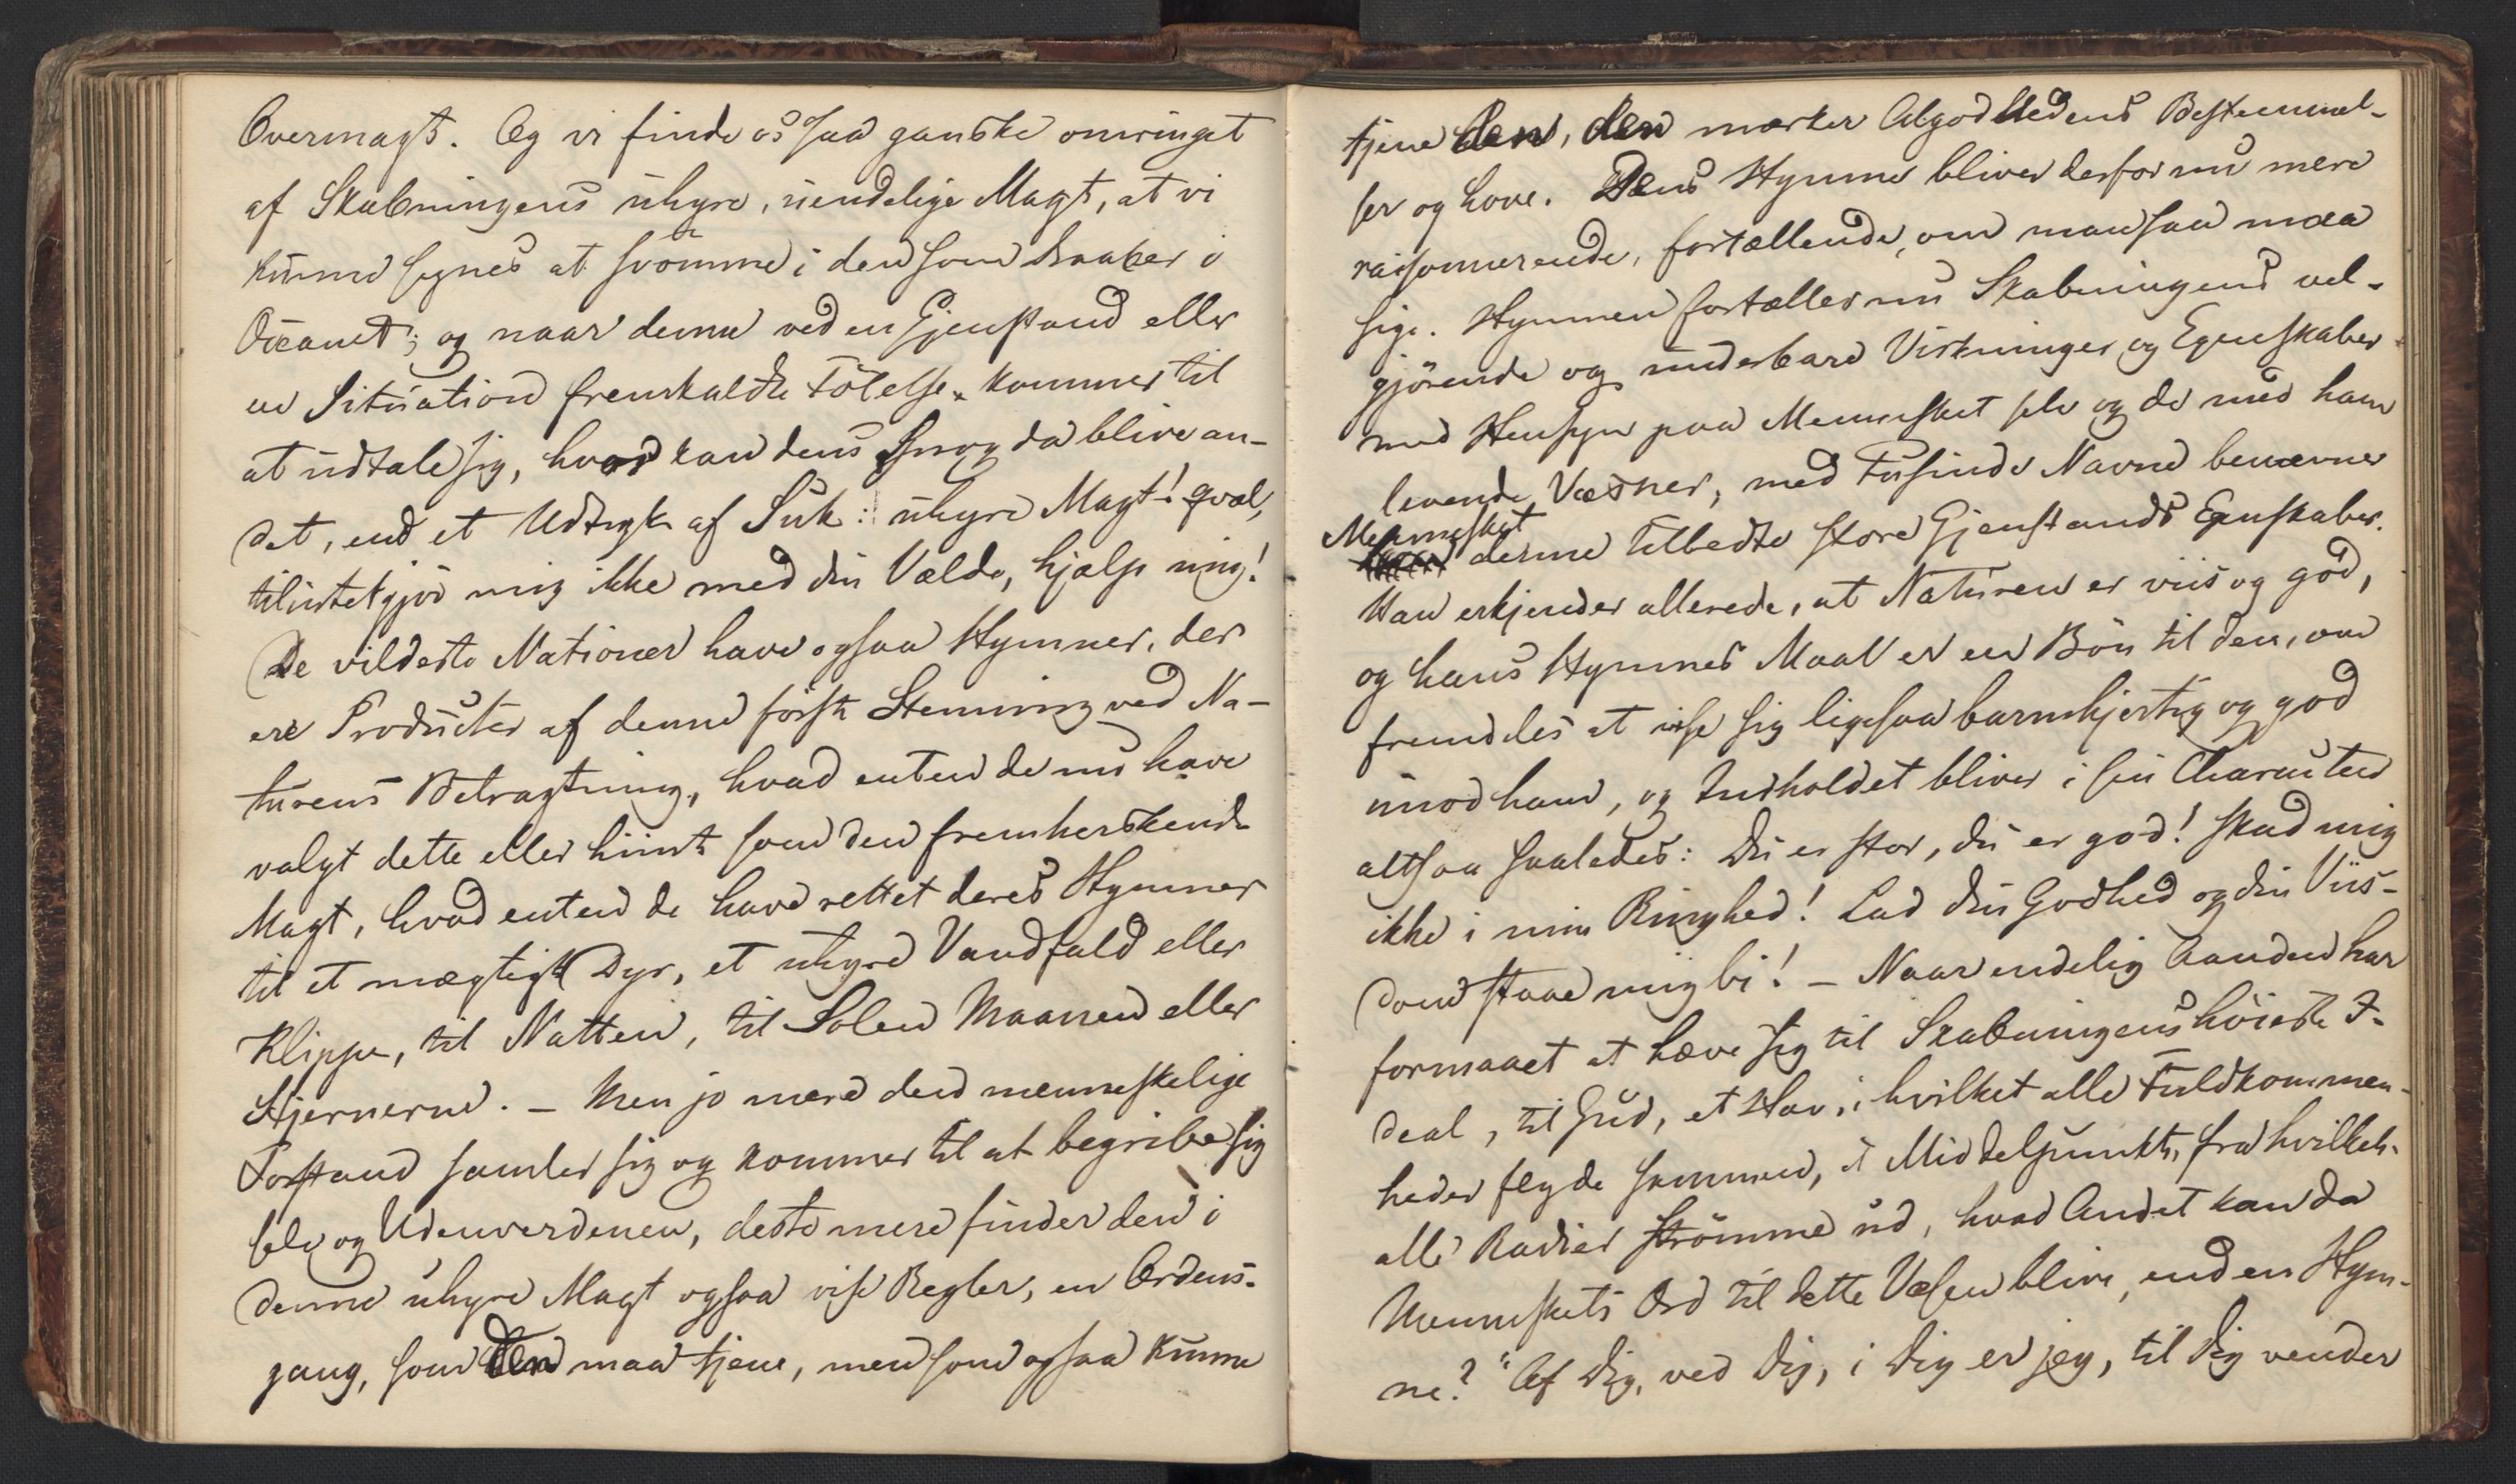 Overmagt. Og vi finde os saa ganske omringet
af Skabningens uhyre, uendelige Magt, at vi
kunne synes at svömme i den som Draaber i
Oceanet; og naar denne ved en Gjenstand eller
en Situation fremkaldte Fölelse kommer til
at udtale sig, hvad kan dens Sprog da blive an-
det, end et Udtryk af Suk: uhyre Magt! qvæl,
tilintetgjör mig ikke med din Vælde, hjælp mig!
De vildeste Nationer have ogsaa Hymner, der
ere Producter af denne förste Stemning ved Na-
turens Betragtning, hvad enten de nu have
valgt dette eller hiint som den fremherskende
Magt, hvad enten de have rettet deres Hymner
til et mægtigt Dyr, et uhyre Vandfald eller
Klippe, til Natten, til Solen Maanen eller
Stjernerne. - Men jo mere den menneskelige
Forstand samler sig og kommer til at begribe sig
selv og Udenverdenen, desto mere finder den i
denne uhyre Magt ogsaa vise Regler, en Ordens-
gang, som den maa tjene, men som ogsaa kunne
tjene den, den mærker Algodhedens Bestemmel-
ser og Love. Dens Hymne bliver derfor nu mere
raisonnerende, fortællende, om man saa maa
sige. Hymnen fortæller nu Skabningens vel-
gjörende og underbare Virkninger og Egenskaber
med Hensyn paa Mennesket selv og de med ham
levende Væsner, med Tusinde Navne benævner
Mennesket
denne tilbedte store Gjenstands Egenskaber.
Han erkjender allerede, at Naturen er viis og god,
og hans Hymnes Maal er en Bön til den, om
fremdeles at vise sig ligesaa barmhjertig og god
imod ham, og Indholdet bliver i sin Character
altsaa saaledes: Du er stor, du er god! skad mig
ikke i min Ringhed! Lad din Godhed og din Viis-
dom staae mig bi! - Naar endelig Aanden har
formaaet at hæve sig til Skabningens höieste I-
deal, til Gud, et Hav, i hvilket alle Fuldkommen-
heder flyde sammen, et Middelpunkt, fra hvilket
alle Radier strömme ud, hvad Andet kan da
Menneskets Ord til dette Væsen blive, end en Hym-
ne? "Af Dig, ved Dig, i Dig er jeg, til Dig vender